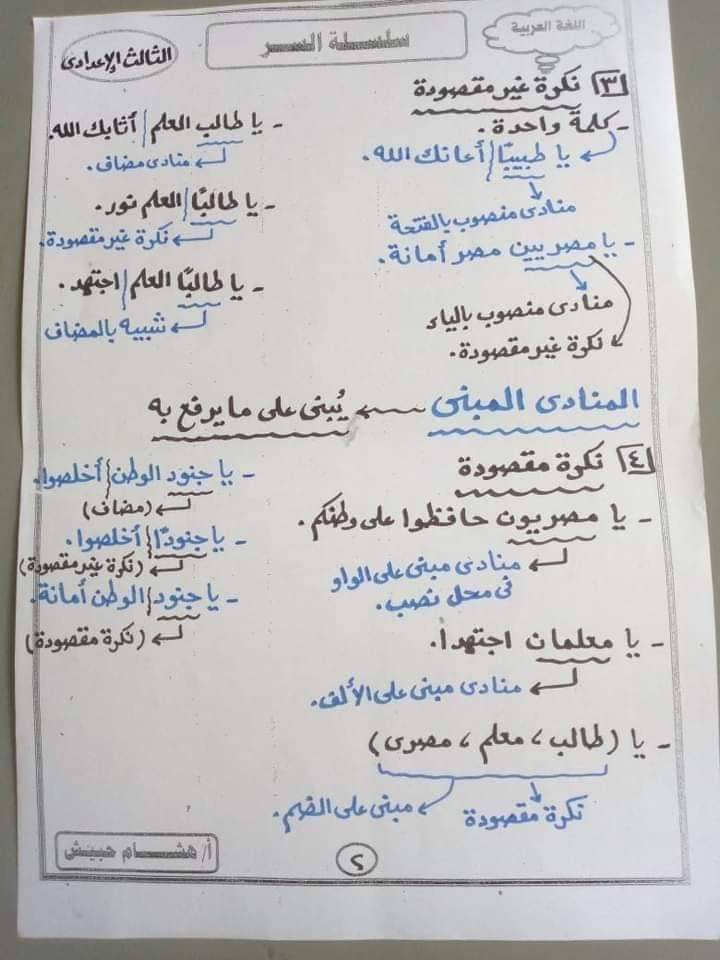 اللغة العربية
سلسلة السر
الثالث الإعدادى
٣ نكرة غير مقصودة
- كلمة واحدة.
يا طبيبًا / أعانك الله.
منادى منصوب بالفتحة
- يا مصريين مصر أمانة.
منادى منصوب بالياء
نكرة غير مقصودة.
- يا طالب العلم / أثابك الله.
منادى مضاف.
- يا طالبًا / العلم نور.
نكرة غير مقصودة.
- يا طالبًا العلم / اجتهد.
شبيه بالمضاف
المنادى المبنى ← يُبنى على ما يرفع به
٤ نكرة مقصودة
- يا مصريون حافظوا على وطنكم.
منادى مبنى على الواو
فى محل نصب.
- يا معلمان اجتهدا.
منادى مبنى على الألف.
- يا (طالب، معلم، مصرى)
نكرة مقصودة
مبنى على الضم.
- يا جنود الوطن / أخلصوا.
(مضاف)
- يا جنودًا / أخلصوا.
(نكرة غير مقصودة)
- يا جنود / الوطن أمانة.
(نكرة مقصودة)
٢
أ/ هشام حبيش